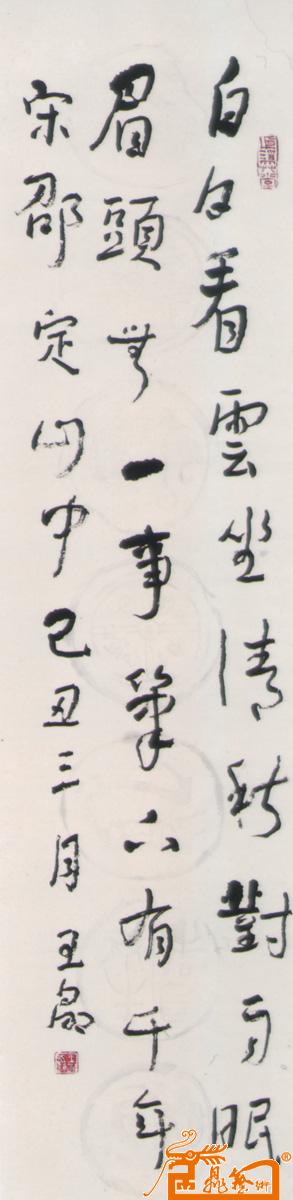 白日看雲坐清秋對雨眠
眉頭無一事筆下有千年
宋邵定山中己丑三月王